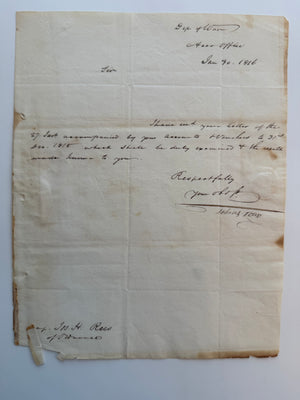 Dep. of War
Accts Office
Jan 30. 1816
Sir
I have recd your letter of the
27 Inst accompanied by your accounts & Vouchers to 31st
Dec. 1815 which shall be duly examined & the result
made known to you.
Respectfully
your
Jno H. Rees